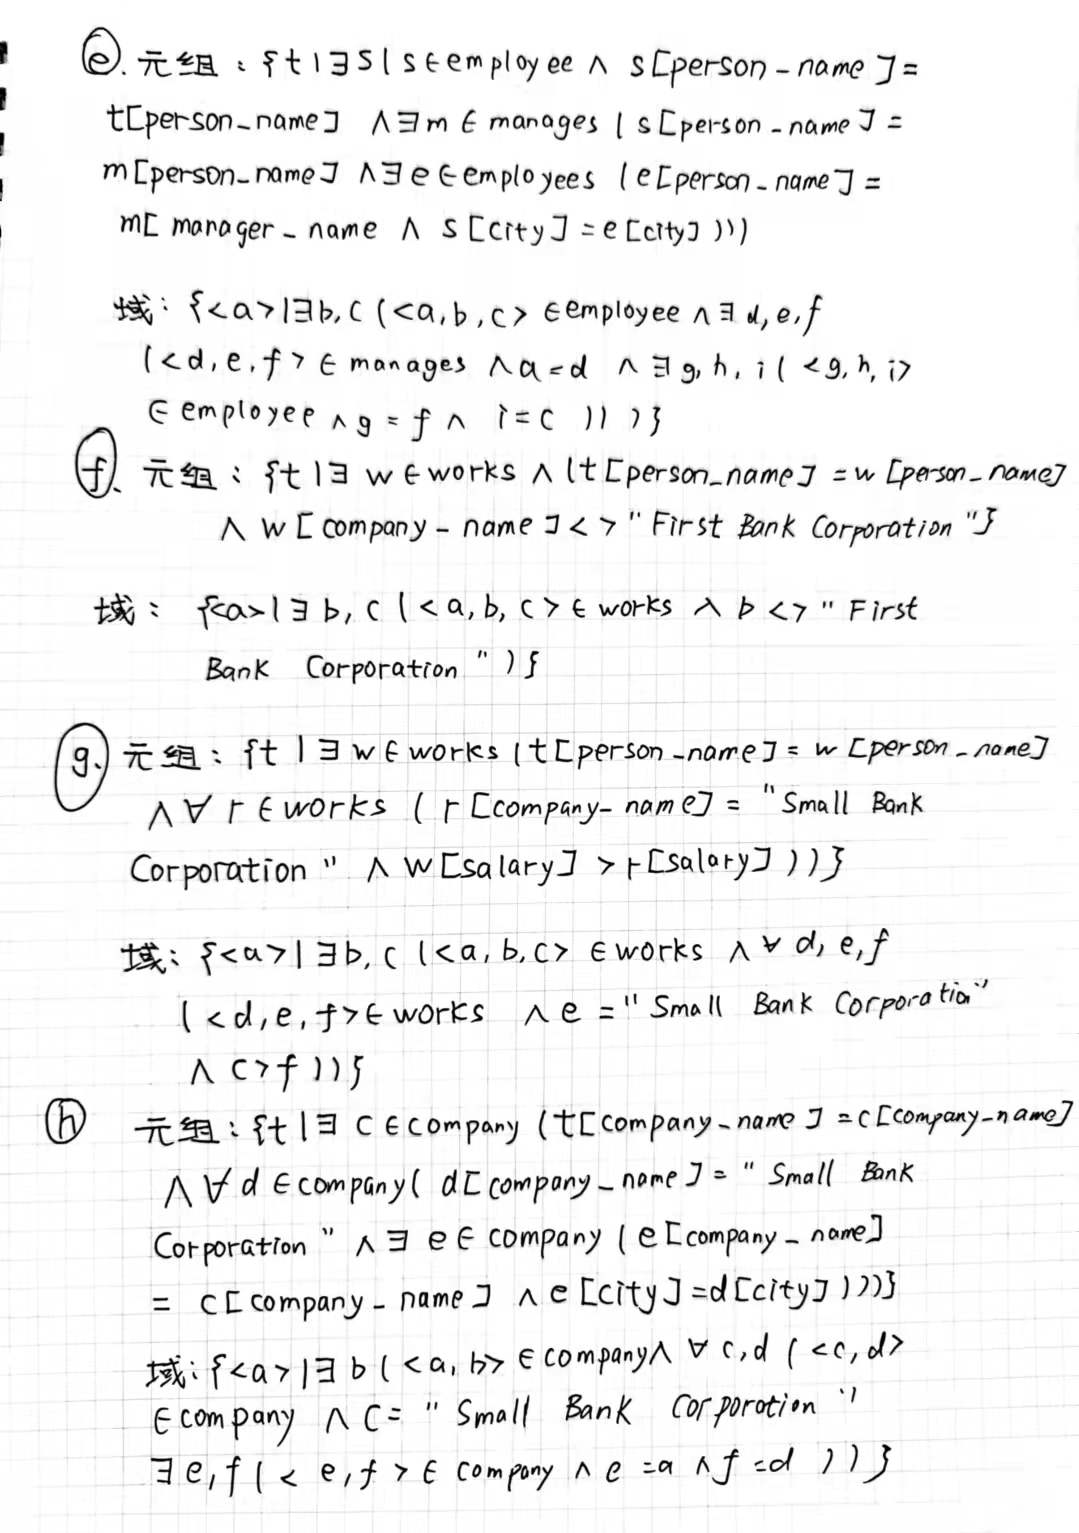 ⓔ. 元组：{t|∃s(s∈employee ∧ s[person-name]=
t[person_name] ∧∃m∈manages (s[person-name]=
m[person_name] ∧∃e∈employees (e[person-name]=
m[manager_name ∧ s[city]=e[city])))
域：{<a>|∃b,c(<a,b,c>∈employee ∧∃d,e,f
(<d,e,f>∈manages ∧a=d ∧∃g,h,i(<g,h,i>
∈employee ∧g=f ∧ i=c )))}
ⓕ. 元组：{t|∃w∈works ∧(t[person_name]=w[person_name]
∧w[company-name]<>"First Bank Corporation"}
域：{<a>|∃b,c(<a,b,c>∈works ∧ b<>"First
Bank Corporation")}
ⓖ. 元组：{t|∃w∈works(t[person_name]=w[person_name]
∧∀r∈works(r[company-name]="Small Bank
Corporation" ∧w[salary]>r[salary]))}
域：{<a>|∃b,c(<a,b,c>∈works ∧∀d,e,f
(<d,e,f>∈works ∧e="Small Bank Corporation"
∧c>f))}
ⓗ 元组：{t|∃c∈company(t[company_name]=c[company-name]
∧∀d∈company(d[company_name]="Small Bank
Corporation" ∧∃e∈company(e[company_name]
=c[company-name] ∧e[city]=d[city])))}
域：{<a>|∃b(<a,b>∈company∧∀c,d(<c,d>
∈company ∧c="Small Bank Corporotion"
∃e,f(<e,f>∈company ∧e=a∧f=d))}